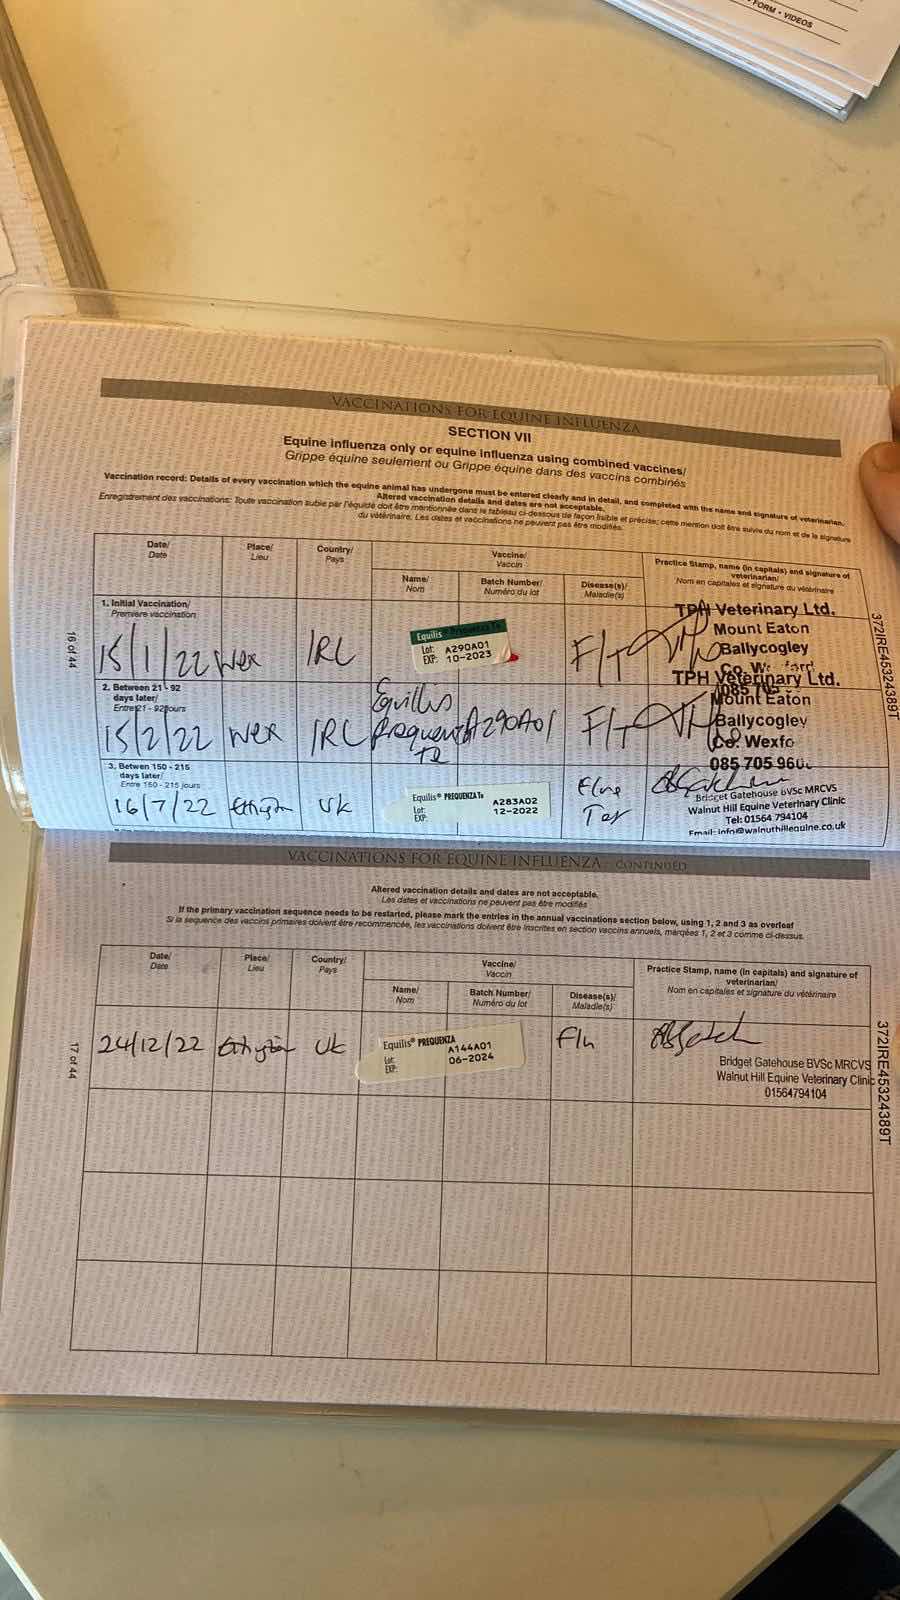 FORM • VIDEOS
VACCINATIONS FOR EQUINE INFLUENZA
SECTION VII
Equine influenza only or equine influenza using combined vaccines/
Grippe équine seulement ou Grippe équine dans des vaccins combinés
Vaccination record: Details of every vaccination which the equine animal has undergone must be entered clearly and in detail, and completed with the name and signature of veterinarian.
Altered vaccination details and dates are not acceptable.
Enregistrement des vaccinations: Toute vaccination subie par l'équide doit être mentionnée dans le tableau ci-dessous de façon lisible et précise; cette mention doit être suivie du nom et de la signature
du vétérinaire. Les dates et vaccinations ne peuvent pas être modifiés.
Date/ Place/ Country/ Vaccine/ Practice Stamp, name (in capitals) and signature of
Date Lieu Pays Vaccin veterinarian/
Name/ Batch Number/ Disease(s)/ Nom en capitales et signature du vétérinaire
Nom Numéro du lot Maladie(s)
1. Initial Vaccination/
Première vaccination
15/1/22 Wex IRL Equilis Prequenza Te Lot: A290A01 EXP: 10-2023 F/T
TPH Veterinary Ltd.
Mount Eaton
Ballycogley
2. Between 21 - 92
days later/
Entre 21 - 92 jours
15/2/22 Wex IRL Equillis Prequenza Te A290A01 F/T
TPH Veterinary Ltd.
Mount Eaton
Ballycogley
Co. Wexfo
085 705 960
3. Betwen 150 - 215
days later/
Entre 150 - 215 jours
16/7/22 UK Equilis® PREQUENZA Te Lot: A283A02 EXP: 12-2022
Bridget Gatehouse BVSc MRCVS
Walnut Hill Equine Veterinary Clinic
Tel: 01564 794104
Email: info@walnuthillequine.co.uk
16 of 44
372IRE45324389T
VACCINATIONS FOR EQUINE INFLUENZA - CONTINUED
Altered vaccination details and dates are not acceptable.
Les dates et vaccinations ne peuvent pas être modifiés
If the primary vaccination sequence needs to be restarted, please mark the entries in the annual vaccinations section below, using 1, 2 and 3 as overleaf
Si la sequence des vaccins primaires doivent être recommencée, les vaccinations doivent être inscrites en section vaccins annuels, marqées 1, 2 et 3 comme ci-dessus.
Date/ Place/ Country/ Vaccine/ Practice Stamp, name (in capitals) and signature of
Date Lieu Pays Vaccin veterinarian/
Name/ Batch Number/ Disease(s)/ Nom en capitales et signature du vétérinaire
Nom Numéro du lot Maladie(s)
24/12/22 UK Equilis® PREQUENZA Lot: A144A01 EXP: 06-2024 Flu
Bridget Gatehouse BVSc MRCVS
Walnut Hill Equine Veterinary Clinic
01564794104
17 of 44
372IRE45324389T